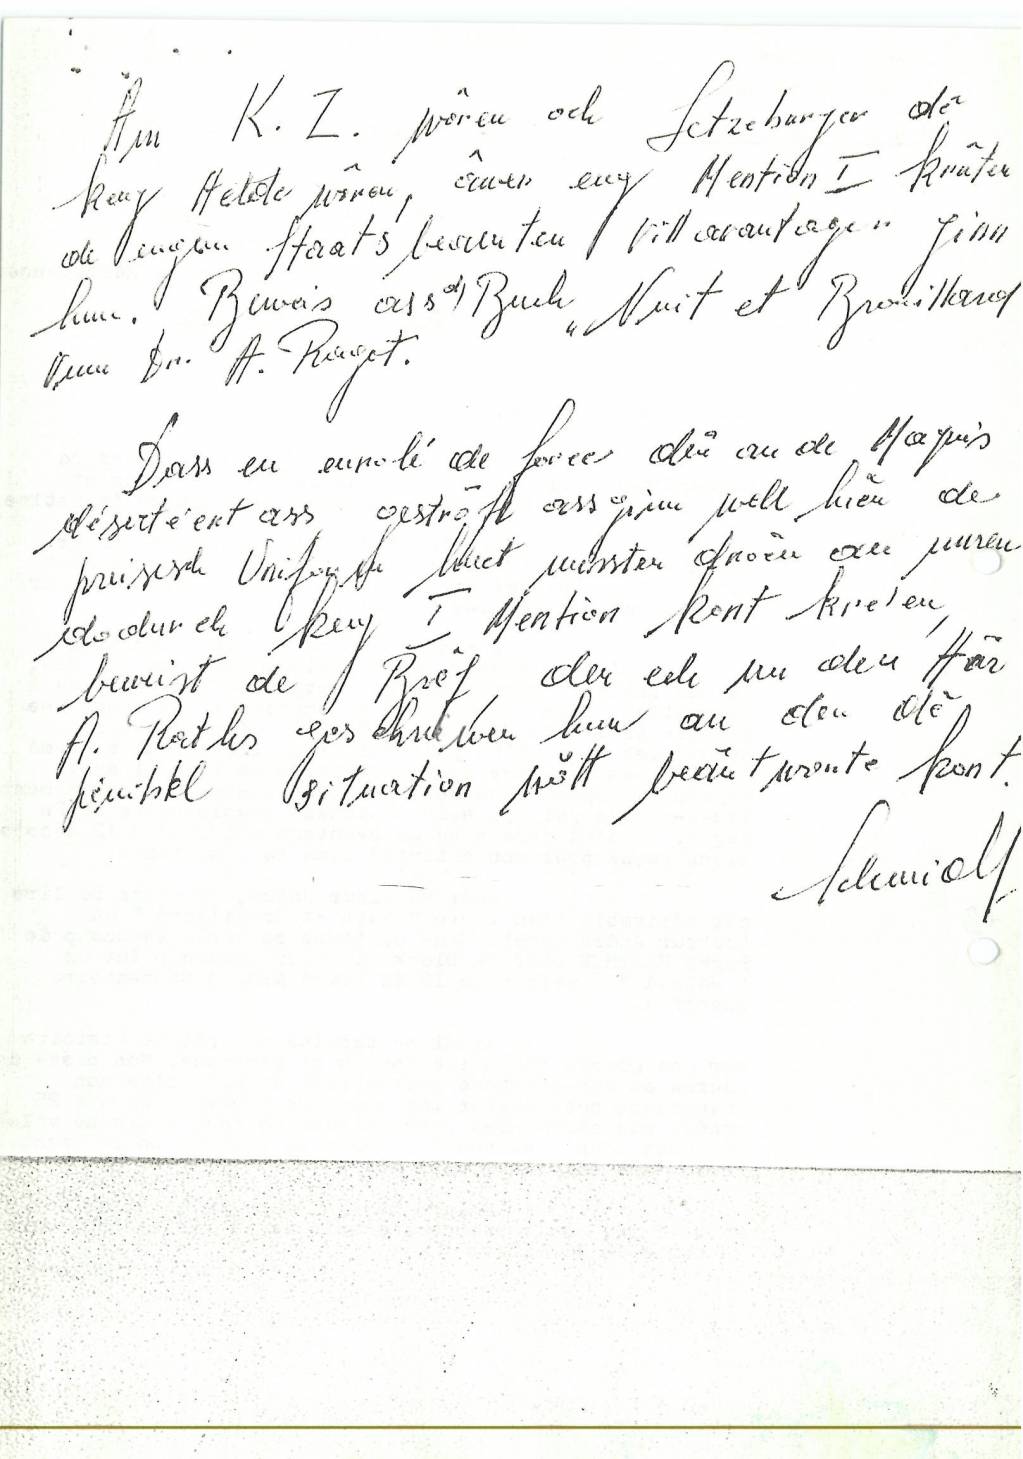 Am K. Z. wören och Letzeburger dê
keng Helde wören, âwer eng Mention I krâten
de engem Staatsbeamten vill avantagen ginn
hun. Beweis ass d'Buch „Nuit et Brouillard
vum Dr. A. Raget.
Dass en enrolé de force dên an de Maquis
désertéert ass gestrôft ass ginn well hien de
preisesch Uniform huet missten droën an
dodurch keng I Mention kont kréien,
beweist de Brêf, den ech un den Här
A. Raths geschriwen hun an den dê
situation nött beäntwonte kont.
Schmidt